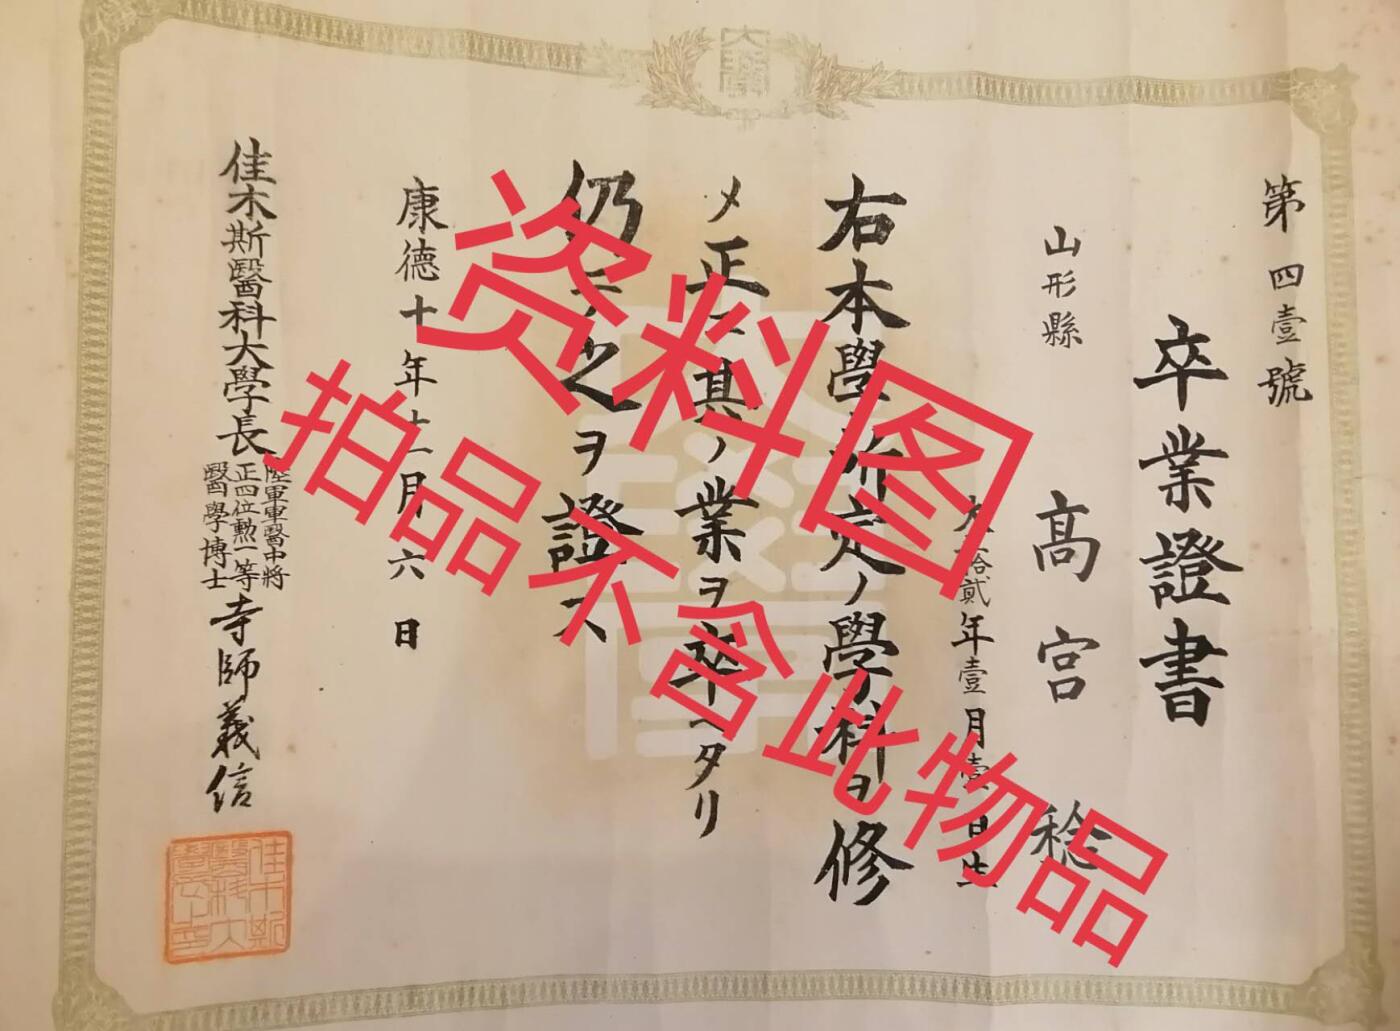 第四壹號
卒業證書
山形縣
髙宮稔
大 拾貳年壹月壹日生
右本學所定ノ學科ヲ修
メ正ニ其ノ業ヲ卒ヘタリ
仍テ之ヲ證ス
康德十年十二月六日
佳木斯醫科大學長
陸軍軍醫中將
正四位勲一等
醫學博士
寺師義信
资料图
拍品不含此物品